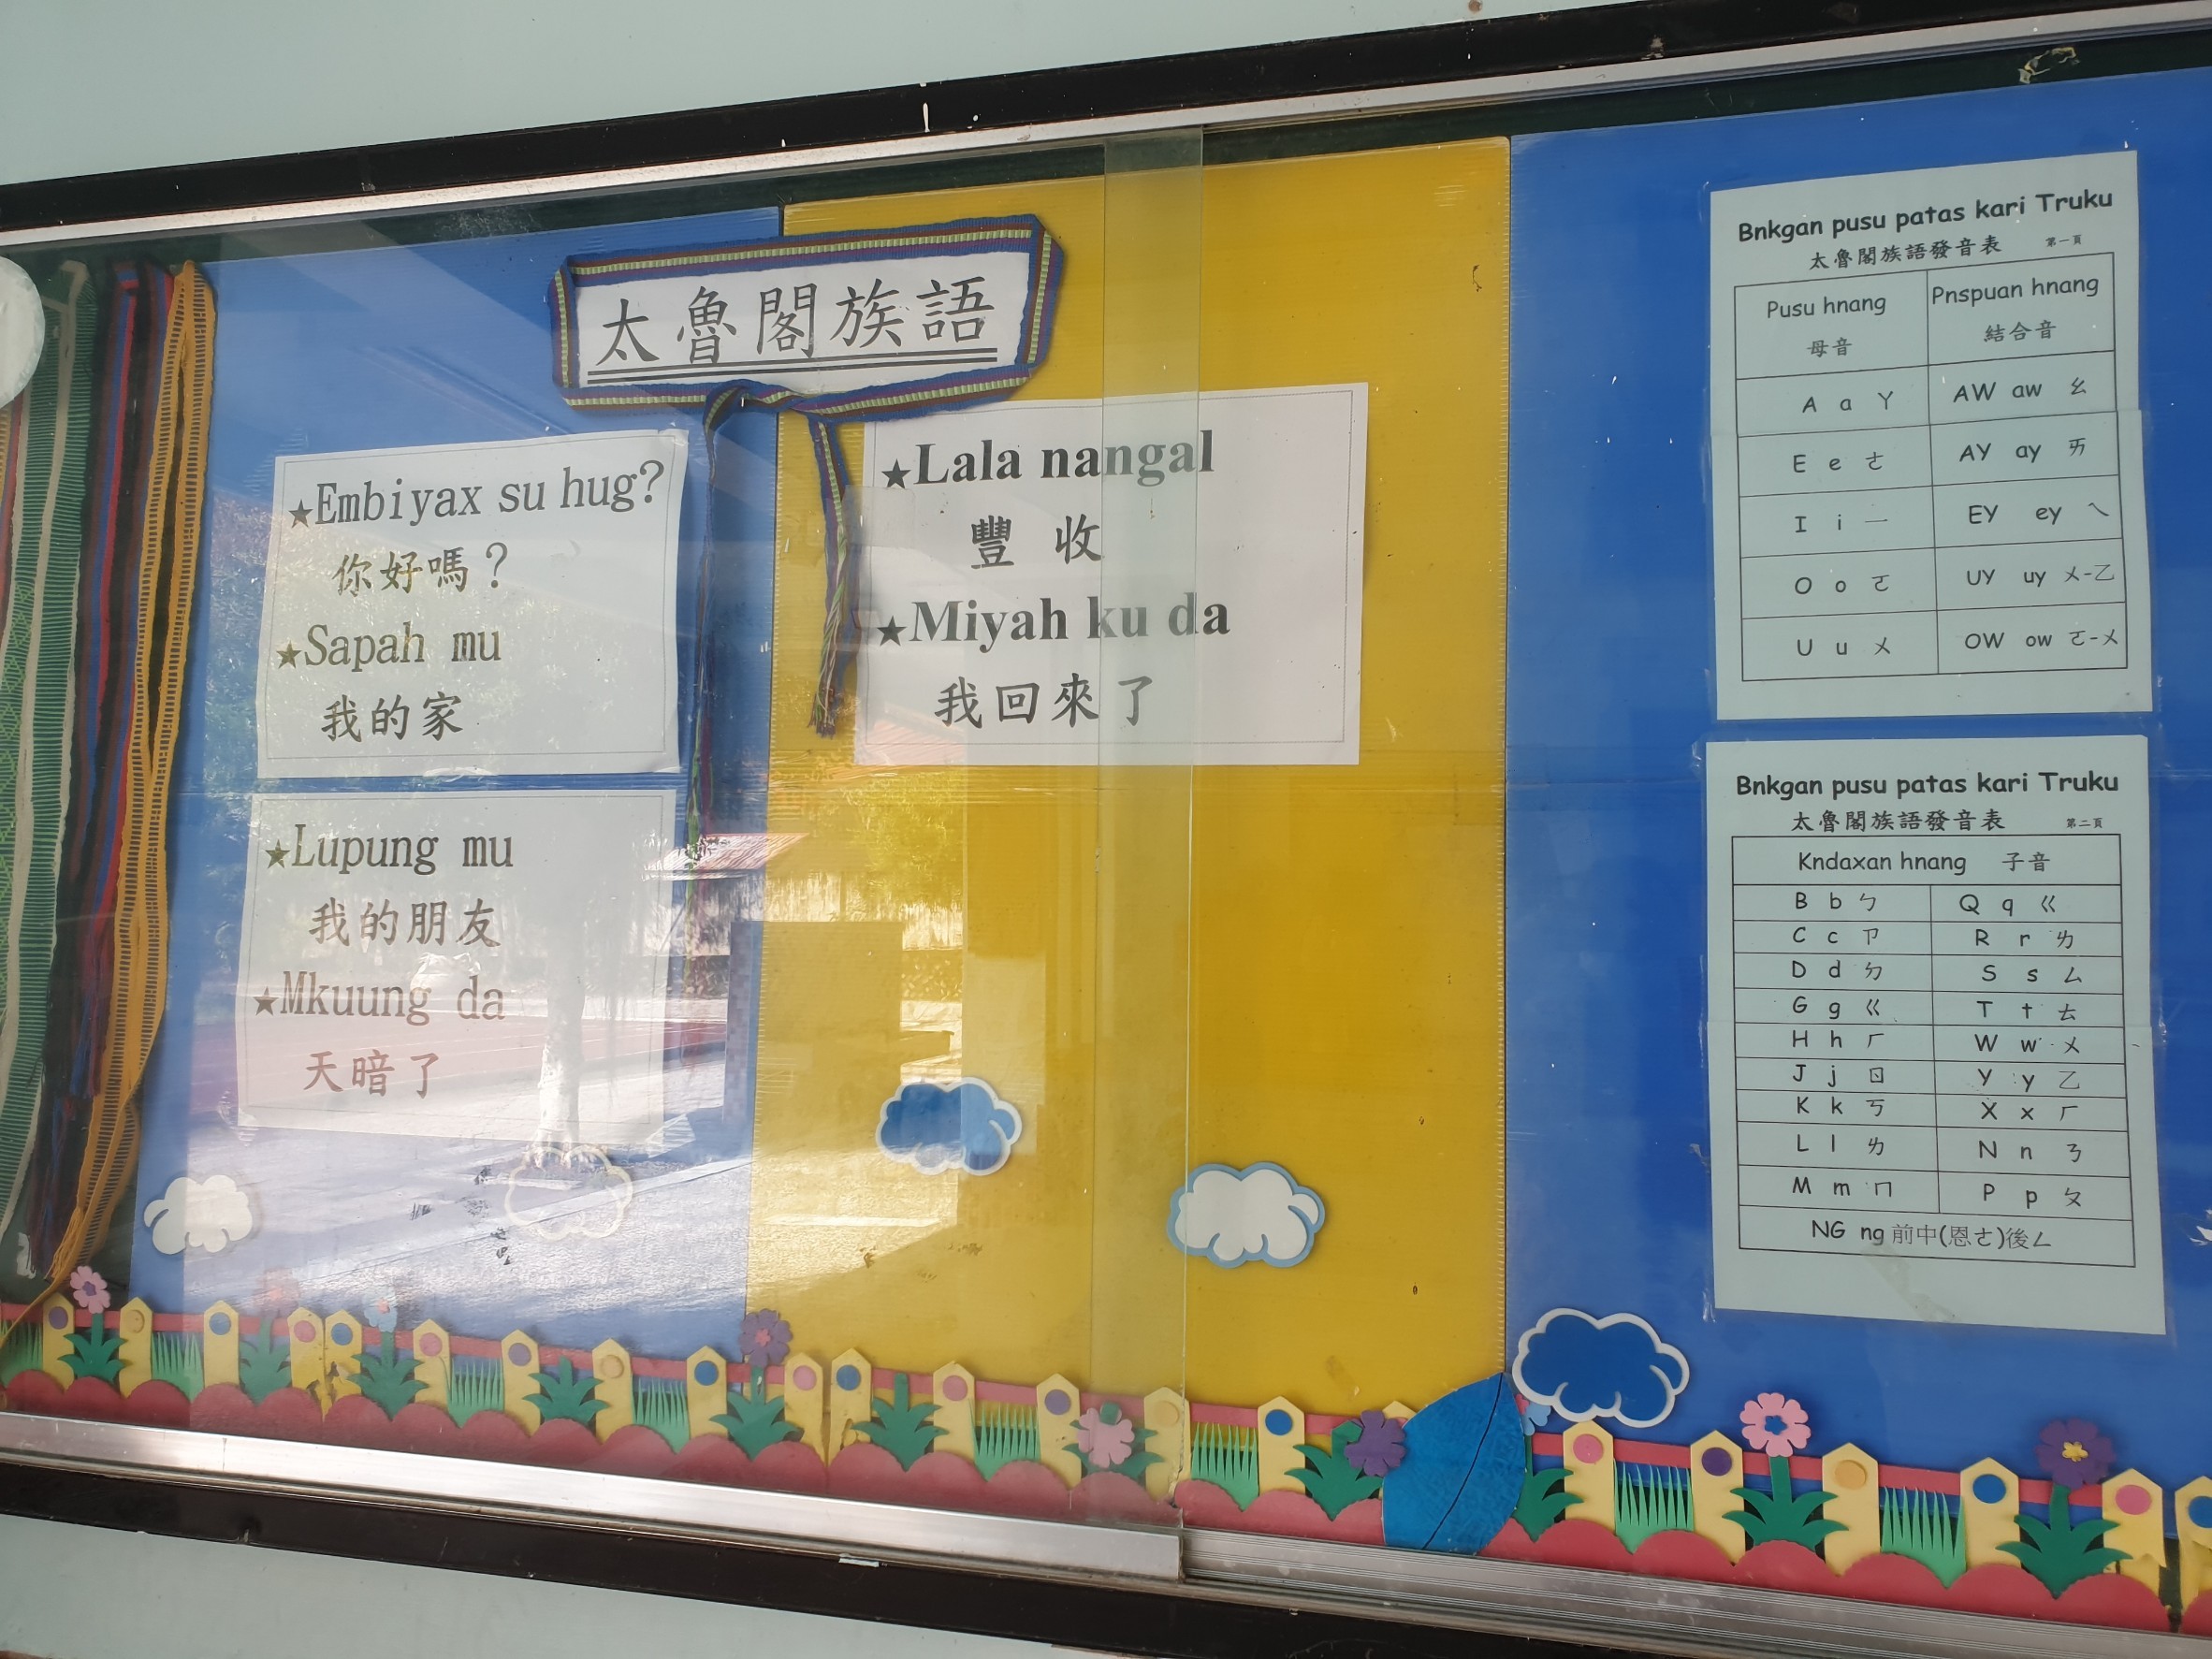 太魯閣族語
★Embiyax su hug?
你好嗎？
★Sapah mu
我的家
★Lupung mu
我的朋友
★Mkuung da
天暗了
★Lala nangal
豐 收
★Miyah ku da
我回來了
Bnkgan pusu patas kari Truku
太魯閣族語發音表 第一頁
Pusu hnang Pnspuan hnang
母音 結合音
A a ㄚ AW aw ㄠ
E e ㄜ AY ay ㄞ
I i ㄧ EY ey ㄟ
O o ㄛ UY uy ㄨ-ㄛ
U u ㄨ OW ow ㄛ-ㄨ
Bnkgan pusu patas kari Truku
太魯閣族語發音表 第二頁
Kndaxan hnang 子音
B b ㄅ Q q ㄍ
C c ㄗ R r ㄌ
D d ㄉ S s ㄙ
G g ㄍ T t ㄊ
H h ㄏ W w ㄨ
J j ㄖ Y y ㄛ
K k ㄎ X x ㄏ
L l ㄌ N n ㄋ
M m ㄇ P p ㄆ
NG ng 前中(恩ㄜ)後ㄥ